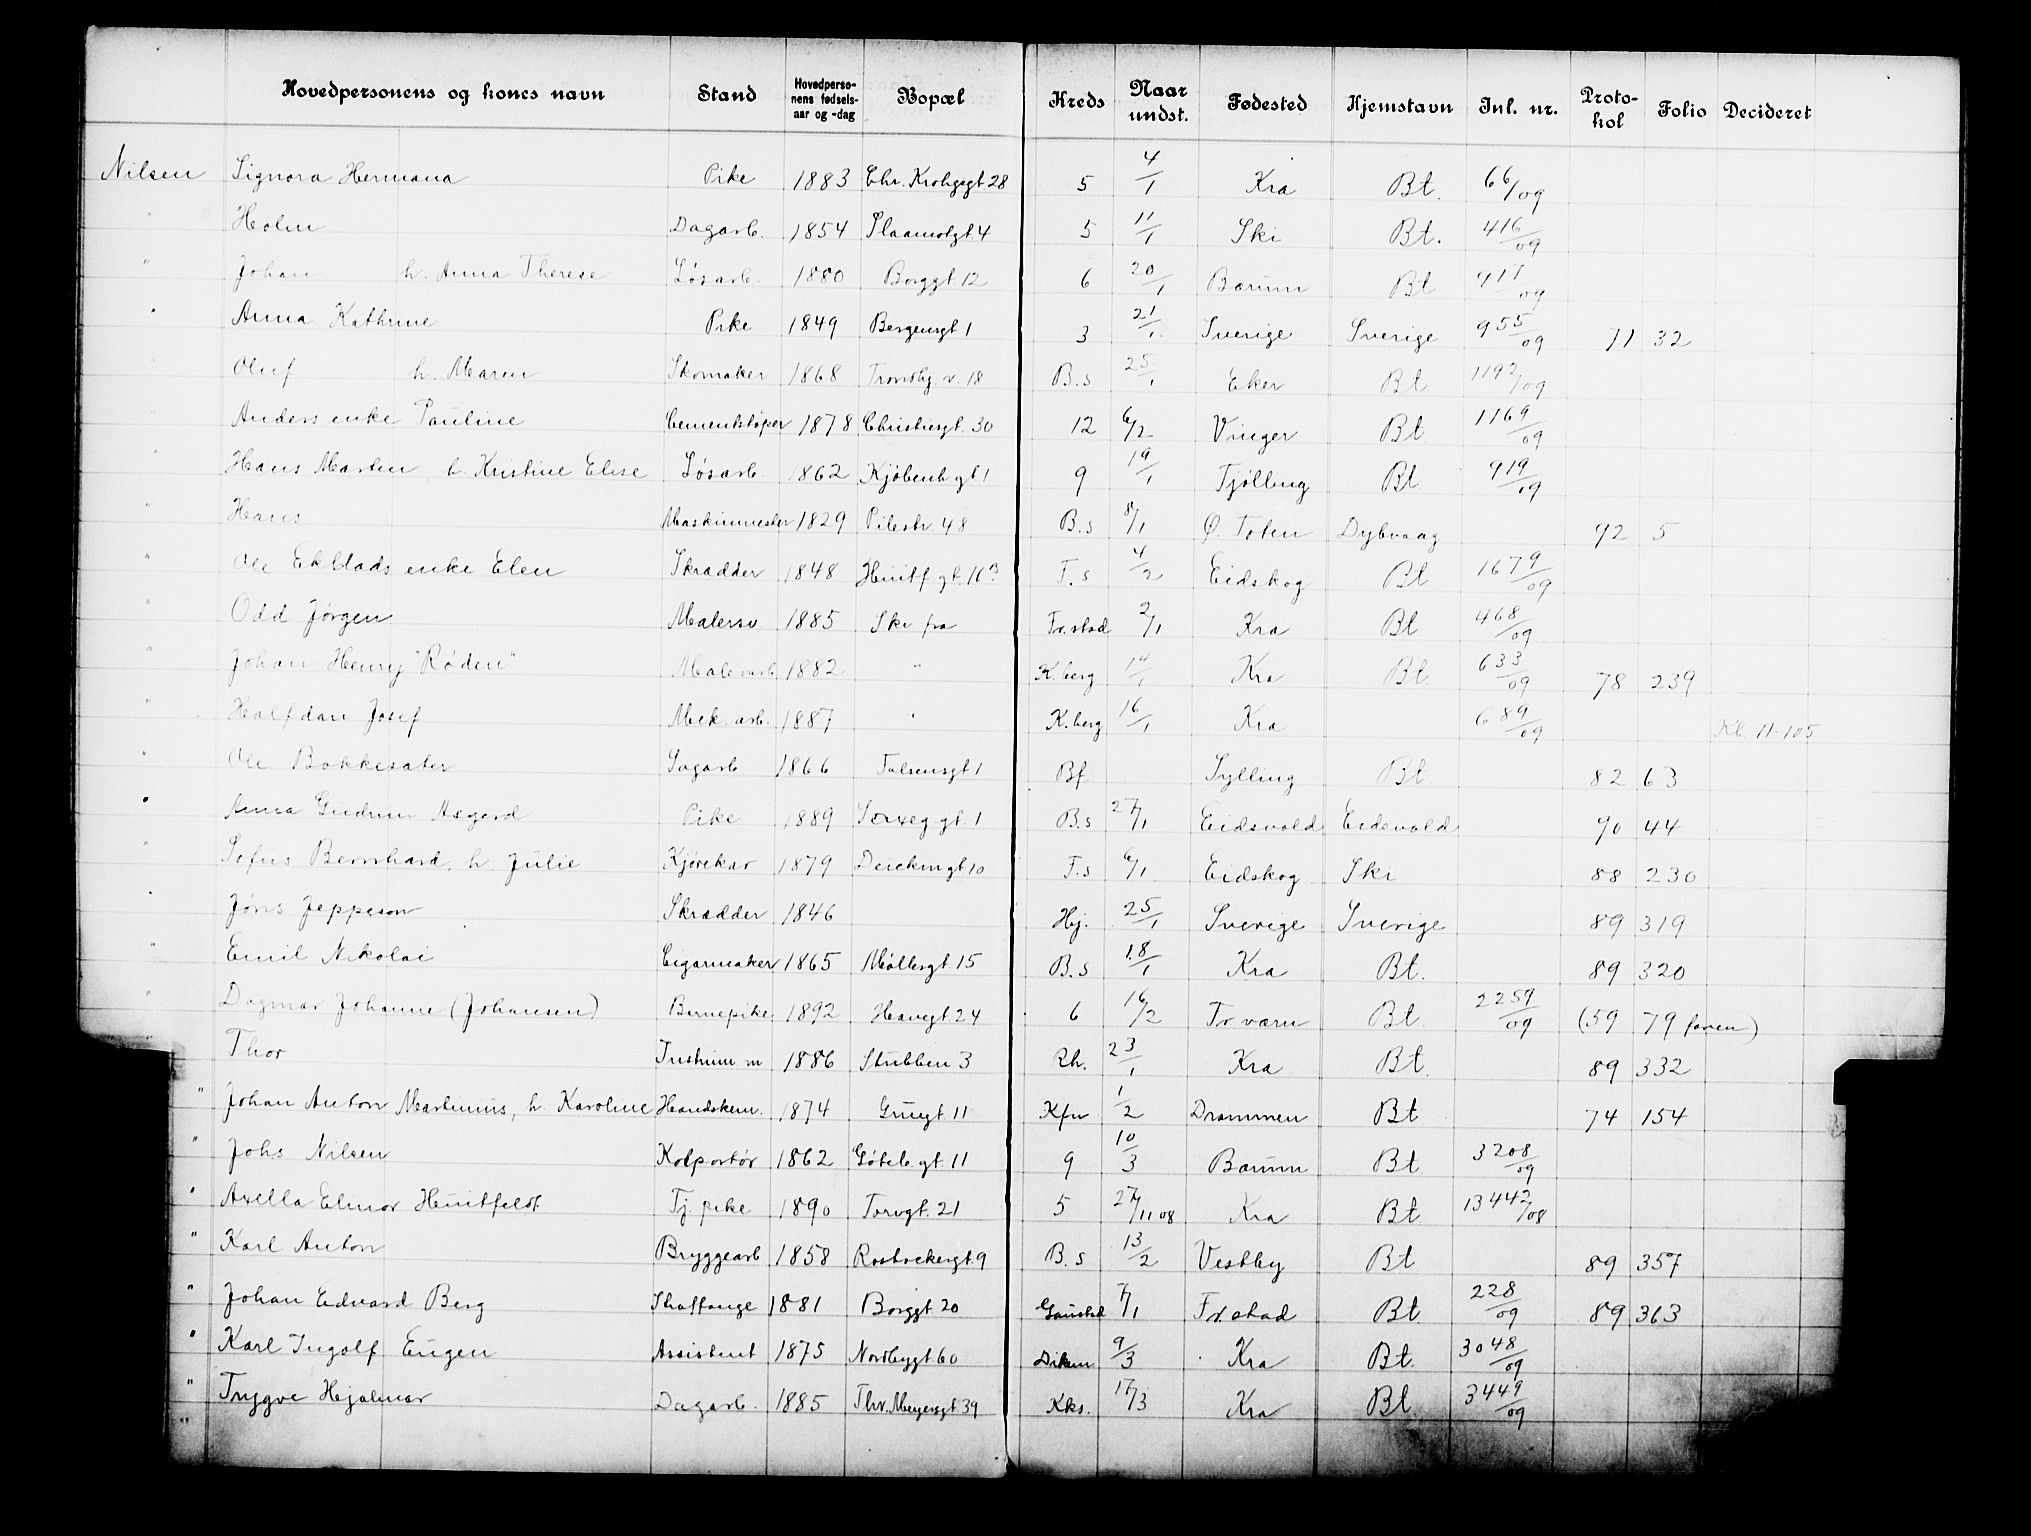 Hovedpersonens og kones navn Stand Hovedpersonens fødselsaar og -dag Bopæl Kreds Naar undst. Fødested Hjemstavn Jnl. nr. Protokol Folio Decideret
Nilsen Signora Hermana Pike 1883 Chr. Krohgsgt 28 5 4/1 Kra Bt. 66/09
" Holm Dagarb. 1854 5 11/1 Ski Bt. 416/09
" Johan h. Anna Therese Løsarb. 1880 Borggt. 12 6 20/1 Bærum Bt 917/09
" Anna Kathrine Pike 1849 Bergensgt 1 3 21/1 Sverige Sverige 955/09 71 32
" Oluf h. Maren Skomaker 1868 Trondhj. v. 18 B.s 25/1 Eker Bt 1192/09
" Anders enke Pauline Cementstøper 1878 Christiesgt. 30 12 6/2 Vinger Bt 1169/09
" Hans Martin h. Kristine Elise Løsarb. 1862 Kjøbenh gt 1 9 19/1 Tjølling Bt 919/09
" Hans Maskinmester 1829 Pilestr. 48 B.s 8/1 Ø. Toten Dybvaag 92 5
" Ole Ekblads enke Elen Skrædder 1848 Huitf gt. 16 F.s 4/2 Eidskog Bt 1679/09
" Odd Jørgen Malersv. 1885 Ski fra Fr.stad 2/1 Kra Bt 468/09
" Johan Henry "Røden" Malerarb 1882 " K.berg 14/1 Kra Bt 633/09 78 239
" Halfdan Josef Mek. arb. 1887 " K.berg 16/1 Kra 689/09 Kl. 11-105
" Ole Bokkesæter Sagarb 1866 Falsensgt 1 Bf Sylling Bt 82 63
" Anna Gudrun Asgerd Pike 1889 gt. 1 B.s 27/1 Eidsvold Eidsvold 90 44
" Sofus Bernhard, h. Julie Kjørekar 1879 Deichmgt 10 F.s 6/1 Eidskog Ski 88 230
" Jøns Jeppeson Skrædder 1846 Hj. 25/1 Sverige Sverige 89 319
" Emil Nikolai Cigarmaker 1865 Møllergt. 15 B.s 18/1 Kra Bt. 89 320
" Dagmar Johanne (Johansen) Barnepike 1892 Havegt 24 6 16/2 Fr.værn Bt 2259/09 (59 79 faren)
" Thor Instrum m 1886 Stubben 3 Rh. 23/1 Kra Bt. 89 332
" Johan Anton Martinius, h. Karoline Handskem. 1874 11 Kfn 1/2 Drammen Bt 74 154
" Johs Nilsen Kolportør 1862 Gøteb. gt. 11 9 10/3 Bærum Bt 3208/09
" Axella Elinor Huitfeldt Tj. pike 1890 Torvgt. 21 5 27/11 08 Kra Bt 13442/08
" Karl Anton Bryggearb 1858 Rostockergt. 9 B.s 13/2 Vestby Bt 89 357
" Johan Edvard Berg 1881 Borggt. 20 Gaustad 7/1 Fr.stad Bt 228/09 89 363
" Karl Ingolf Eugen Assistent 1875 Nordbygt 60 Dikem 9/3 Kra Bt 3048/09
" Trygve Hjalmar Dagarb. 1885 Thv. Meyersgt. 39 Kks. 17/3 Kra Bt. 3449/09
"